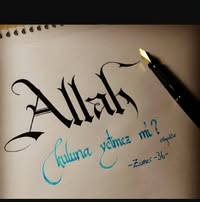 Allah
kuluna yetmez mi?
-Zümer-36-